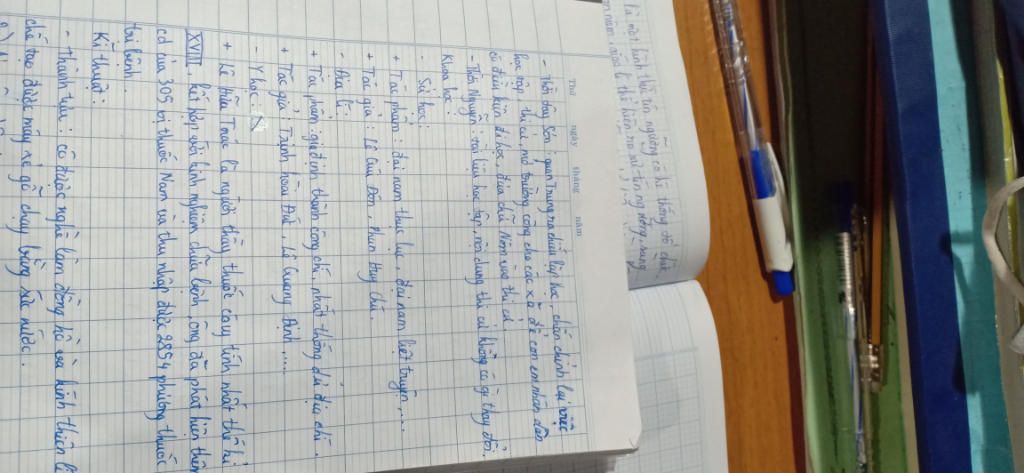 Thứ ngày tháng năm
- Thời Tây Sơn: quan Trung ra chiếu lập học, chấn chỉnh lại việc
học tập thi cử, mở trường công cho các xã để con em nhân dân
có điều kiện đi học, đưa chữ Nôm vào thi cử.
- Thời Nguyễn: tài liệu học tập, nội dung thi cử không có gì thay đổi.
Khoa học
- Sử học:
+ Tác phẩm: đại nam thực lục, đại nam liệt truyện,...
+ Tác giả: Lê Quý Đôn, phan Huy Chú.
- Địa lí:
+ Tác phẩm: gia định thành công chí, nhất thống dư địa chí.
+ Tác giả: Trịnh hoài Đức, Lê Quang Định....
- Y học:
+ Lê Hữu Trác là người thầy thuốc có uy tính nhất thế kỉ
XVIII, kết hợp với kinh nghiệm chữa bệnh, ông đã phát hiện thêm
cd của 305 vị thuốc Nam và thu nhập được 2854 phương thuốc
trị bệnh.
Kĩ thuật:
- thành tựu: có được nghề làm đồng hồ và kính thiên lí
chế tạo được máy xẻ gỗ chạy bằng sức nước.
là một hình thức tín ngưỡng có hệ thống